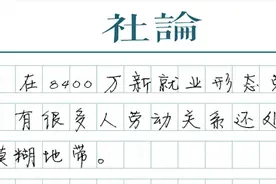 社論
在8400万新就业形态
有很多人劳动关系还处
模糊地带。